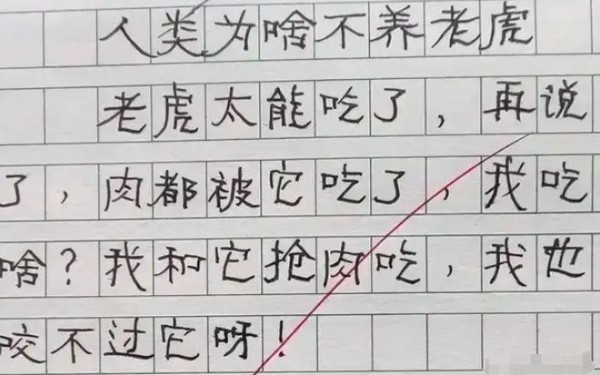 人类为啥不养老虎
老虎太能吃了，再说
了，肉都被它吃了，我吃
啥？我和它抢肉吃，我也
咬不过它呀！